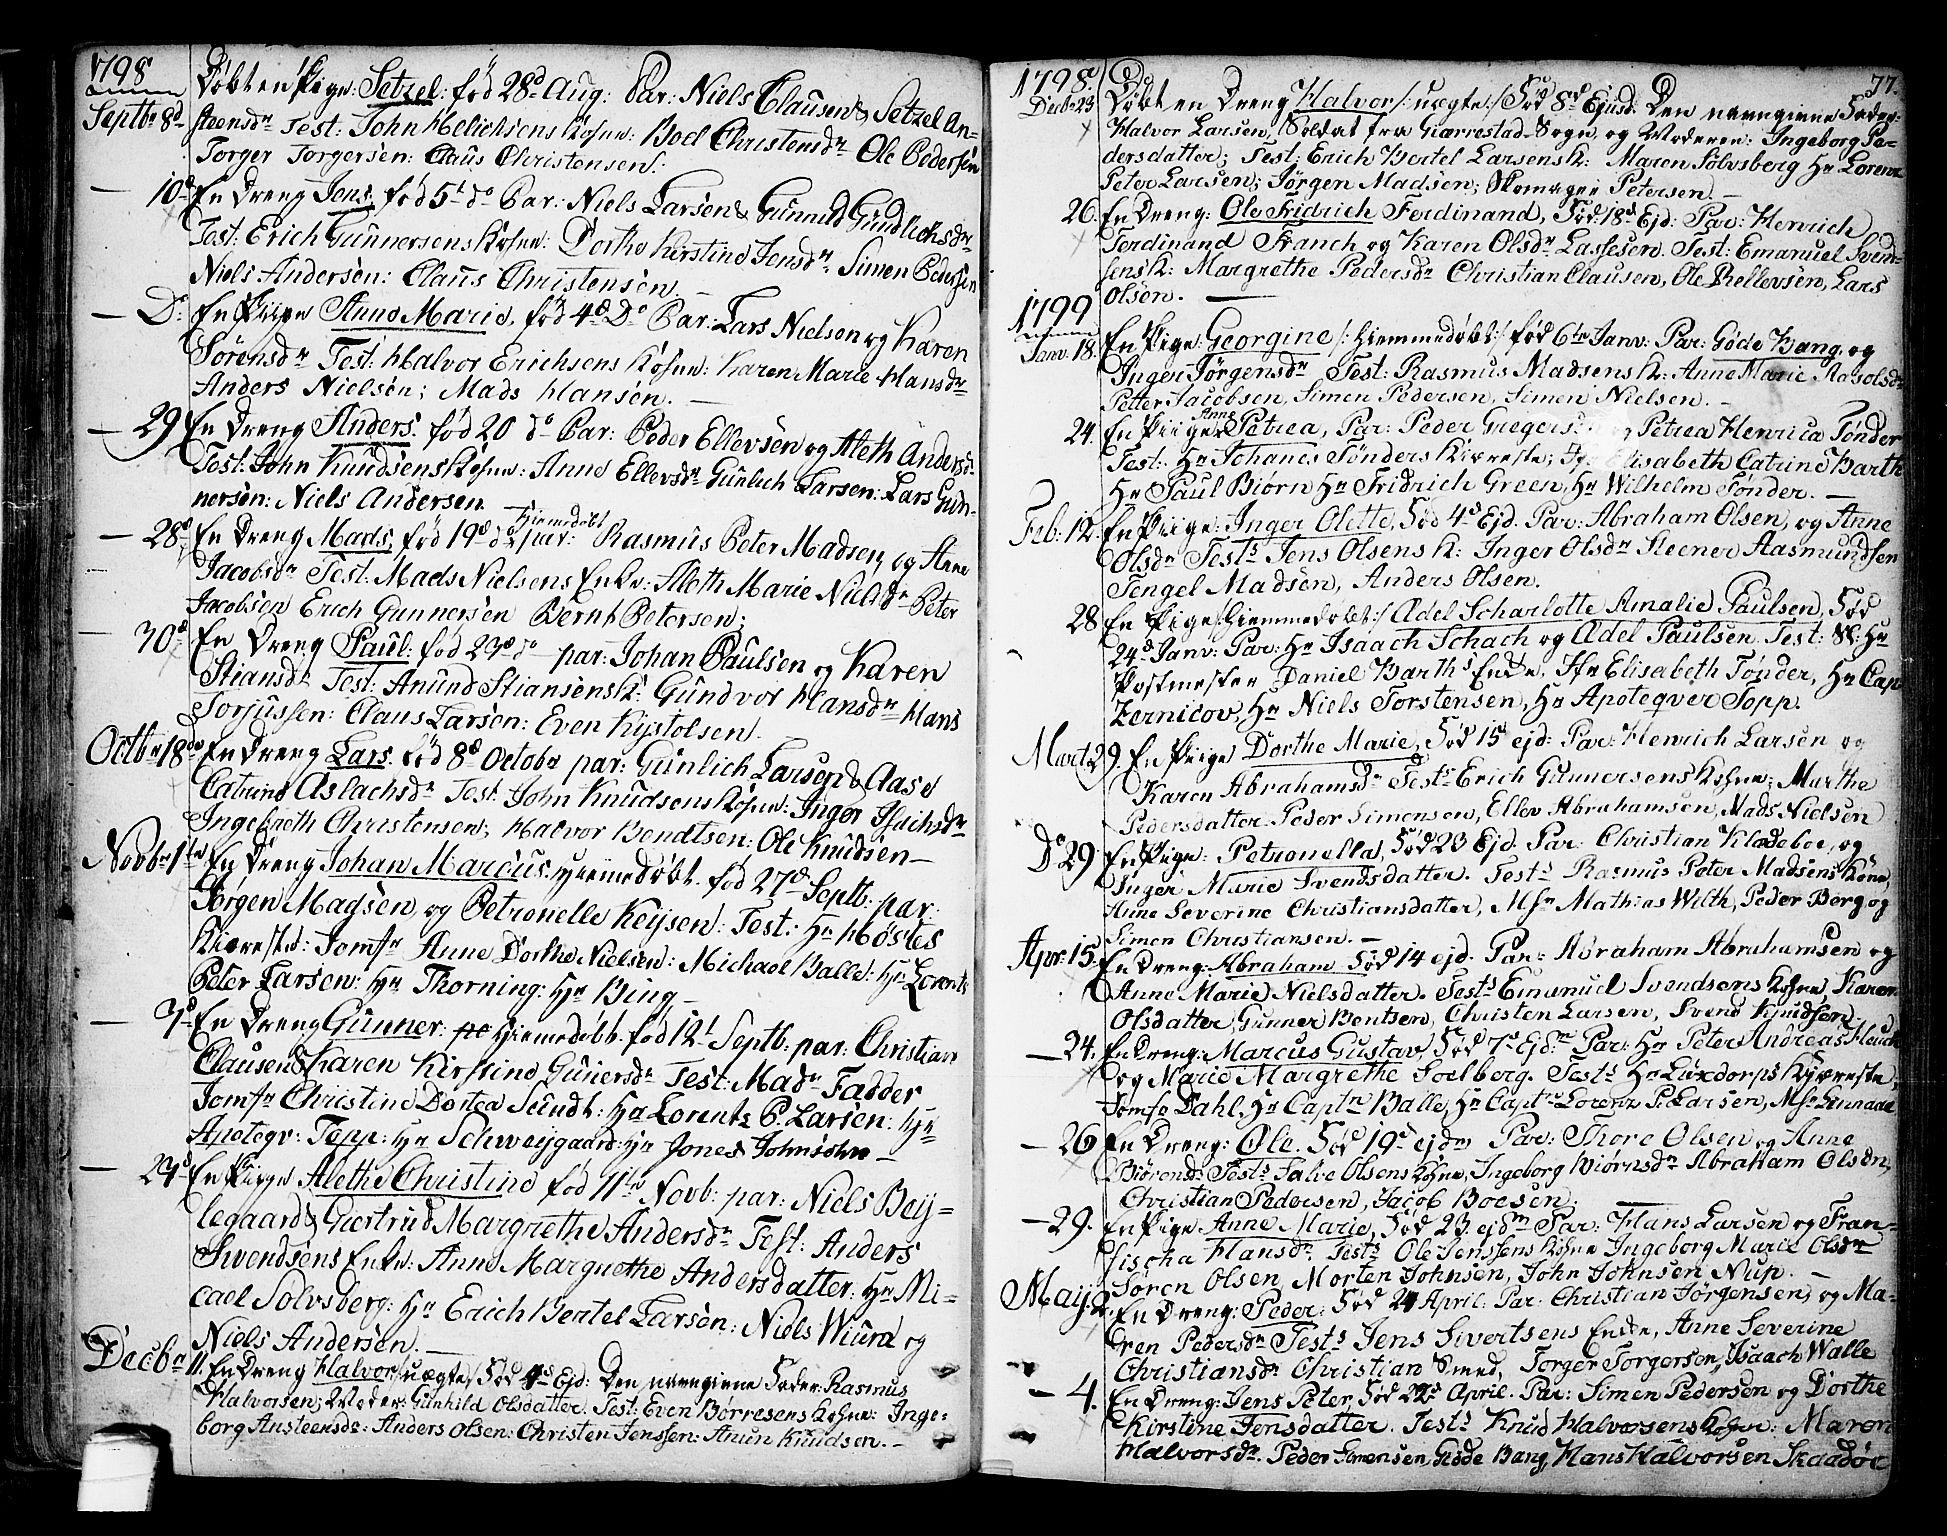 1798
Septbr 8d Döbt en Pige: Setzel: föd 28d Aug: Par: Niels Clausen & Setzel An-
steensdr Test: John Melichsens Kohne: Boel Christensdr Ole Pedersen
Torger Torgersen: Claus Christensen.
— 10d En Dreng Jens, föd 5t do Par: Niels Larsen & Gunnild Gundlichsdr
Test: Erich Gunnersens Kohne: Dorthe Kirstine Jensdr Simen Pedersen
Niels Andersen: Claus Christensen. —
— Do En Piige Anne Marie, föd 4d Do Par: Lars Nielsen og Karen
Sörensdr Test: Halvor Erichsens Kohne: Karen Marie Hansdr
Anders Nielsen; Mads Hansen. —
— 29 En Dreng Anders. föd 20 do Par: Peder Ellevsen og Aleth Andersd:
Test: John Knudsens Kohne: Anne Ellevsdr Gunlich Larsen: Lars Gun-
nersen: Niels Andersen.
— 28d En Dreng Mads, föd 19d do Hiemedöbt par: Rasmus Peter Madsen, og Anne
Jacobsdr Test: Mads Nielsens Enke: Aleth Marie Nielsdr Peter
Jacobsen Erich Gunnersen Bernt Petersen;
— 30d En Dreng Paul: föd 23d do — par: Johan Paulsen og Karen
Stiansdr Test: Anund Stiansens K: Gundvor Hansdr Hans
Torjussen: Claus Larsen: Even Kystolsen.
Octbr 18de En Dreng Lars föd 8d Octobr par: Gunlich Larsen & Aase
Catrine Aslachsdr Test: John Knudsens Kohne: Inger
Ingebreth Christensen; Halvor Bendtsen: Ole Knudsen —
Novbr 1te En Dreng Johan Marcus. Hiemedöbt. föd 27d Septb: par:
Jörgen Madsen, og Petronelle Keysen: Test: Hr Höstes
Kiæreste: Jomfr Anne Dorthe Nielsen: Michael Balle: Hr Lorents
Peter Larsen: Hr Thorning: Hr Bing —
— 3d En Dreng Gunner: Hiemedöbt föd 12t Septb: par: Christian
Clausen & Karen Kirstine Gunersdr Test: Madm Fadder
Jomfr Christine Dortea Sundt: Hr Lorentz P. Larsen: Hr
Apoteqv: Topp: Hr Schweygaard: Hr Jones Johnsohn —
— 24d En Piige Alethe Christine föd 11te Novb: par: Niels Bey-
legaard & Giertrud Margrethe Andersdr Test: Anders
Svendsens Enke: Anne Margrethe Andersdatter: Hr Mi-
cael Solvsberg: Hr Erich Bertel Larsen: Niels Wiura og
Niels Andersen. —
Decbr 11. En Dreng Halvor /:uægte/ Föd 4d Ejd: Den navngivne Fader: Rasmus
Halvorsen; Moder: Gunhild Olsdatter. Test: Even Börresens Kohne: Inge-
borg Ansteensdr: Anders Olsen: Christen Jenssen: Anun Knudsen. —
1798. 77.
Decbr 23 Döbt en Dreng Halvor /:uægte:/ Föd 8d Ejusd: Den navngivne Fader
Halvor Larsen, Soldat fra Gierrestad-Sogn, og Moderen: Ingeborg Pe-
dersdatter; Test: Erich Bertel Larsens K: Maren Sölvsberg Hr Lorenz
Peter Larsen; Jörgen Madsen; Skomager Petersen. —
26. En Dreng: Ole Fridrich Ferdinand, Föd 18d Ejd: Par: Henrich
Ferdinand Franch og Karen Olsdr Lassesen. Test: Emanuel Svend-
sens K: Margrethe Pedersdr Christian Clausen, Ole Rellevsen, Lars
Olsen. —
1799
Janv. 18. En Pige: Georgine /: hiemmedöbt:/ föd 6te Janv: Par: Göde Bang, og
Inger Jörgensdr Test: Rasmus Madsens K: Anne Marie Aasolsdr
Petter Jacobsen, Simen Pedersen, Simen Nielsen. —
24. En Piige: Anne Petrea, Par: Peder Gregers og Petrea Henrica Tönder
Test: Hr Johanes Tönders Kiæreste; Elisabeth Catrine Barth
Hr Paul Biörn Hr Fridrich Green, Hr Wilhelm Tönder. —
Feb: 12. En Piige: Inger Olette, Föd 4d Ejd. Par: Abraham Olsen, og Anne
Olsdr Tests Jens Olsens K: Inger Olsdr Steener Aasmundsen
Tengel Madsen, Anders Olsen.
28 En Pige /:hiemmedöbt:/ Adel Scharlotte Amalie Paulsen, Föd
24d Janv: Par: Hr Isaach Schach og Adel Paulsen Test: Hr
Postmester Daniel Barths Enke, Jfr Elisabeth Tönder, Hr Cap
Zernicov, Hr Niels Torstensen, Hr Apoteqver Topp.
Mart. 29. En Piige Dorthe Marie, Föd 15 ejd: Par: Henrich Larsen og
Karen Abrahamsdr Tests Erich Gunnersens Kohne; Marthe
Pedersdatter Peder Simensen, Ellev Abrahamsen, Mads Nielsen
Do 29. En Piige: Petronella, Föd 23 Ejd. Par: Christian Kladeboe, og
Inger Marie Svendsdatter. Tests Rasmus Peter Madsens Köne,
Anne Severine Christiansdatter, Msr Mathias Wilth, Peder Berg og
Simen Christiansen. —
Apr: 15. En Dreng: Abraham Föd 14 ejd. Par: Abraham Abrahamsen og
Anne Marie Nielsdatter. Tests Emanuel Svendsens Kohne Karen
Olsdatter, Gunner Bentsen, Christen Larsen, Svend Knudsen.
— 24. En Dreng: Marcus Gustav, Föd 7d Ejdm Par: Hr Peter Andreas Heuch
og Marie Margrethe Soelberg. Tests Hr Luxdorphs Kjæreste,
Jomfr Dahl, Hr Captn Balle, Hr Captn Lorenz P: Larsen, Msr Linnaae
— 26. En Dreng: Ole. Föd 19d ejdm Par: Thore Olsen og Anne
Biörensdr Tests Salve Olsens Kohne, Ingeborg Biörnsdr Abraham Olsen,
Christian Pedersen, Jacob Boesen
— 29. En Pige Anne Marie, Föd 23. ejdm Par: Hans Larsen og Fran-
sischa Hansdr. Tests Ole Jenssens Kohne Ingeborg Marie Olsdr
Sören Olsen, Morten Johnsen, John Johnsen Nup. —
Maij 2. En Dreng: Peder: Föd 24 April: Par: Christian Jörgensen, og Ma-
ren Pedersdr Tests Jens Sivertsens Enke, Anne Severine
Christiansdr Christian Smed, Torger Torgersen, Isaach Walle
— 4. En Dreng: Jens Peter, Föd 22d April. Par: Simen Pedersen og Dorthe
Kirstine Jensdatter. Tests Knud Halvorsens Kohne: Maren
Halvorsdr. Peder Simensen, Göde Bang, Hans Halvorsen Skaadöe